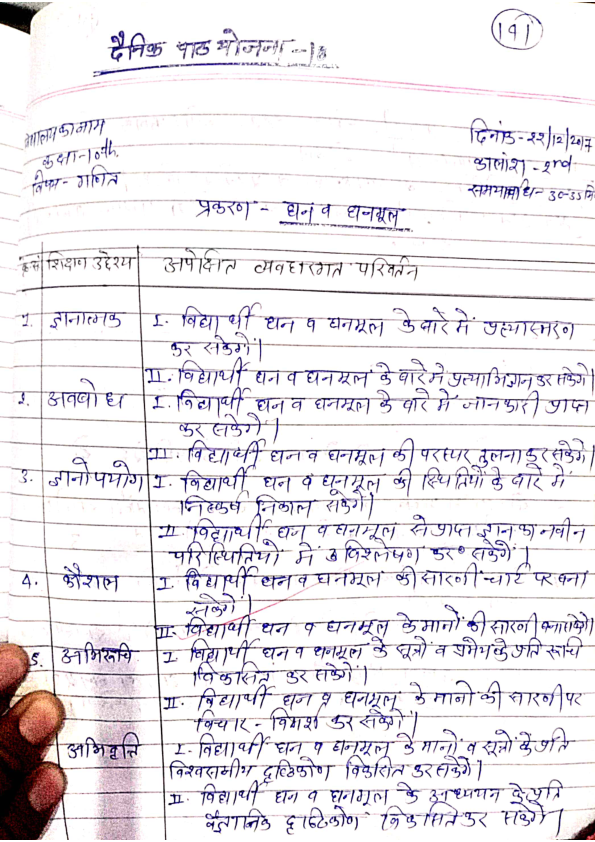 191
दैनिक पाठ योजना -
का नाम
दिनांक - 22/12/2017
कक्षा - 10th.
कालांश - 2nd
विषय - गणित
समयावधि - 30-35 मि
प्रकरण - घन व घनमूल
शिक्षण उद्देश्य अपेक्षित व्यवहारगत परिवर्तन
1. ज्ञानात्मक I. विद्यार्थी घन व घनमूल के बारे में प्रत्यास्मरण
कर सकेगें।
II. विद्यार्थी घन व घनमूल के बारे में प्रत्याभिज्ञान कर सकेगें।
2. अवबोध I. विद्यार्थी घन व घनमूल के बारे में जानकारी प्राप्त
कर सकेगें।
II. विद्यार्थी घन व घनमूल की परस्पर तुलना कर सकेगें।
3. ज्ञानोपयोग I. विद्यार्थी घन व घनमूल की स्थितियों के बारे में
निष्कर्ष निकाल सकेगें।
II विद्यार्थी घन व घनमूल से प्राप्त ज्ञान का नवीन
परिस्थितियों में विश्लेषण कर सकेगें।
4. कौशल I. विद्यार्थी घन व घनमूल की सारणी चार्ट पर बना
सकेगें।
II. विद्यार्थी घन व घनमूल के मानों की सारणी बना सकेगें।
5. अभिरूचि I. विद्यार्थी घन व घनमूल के सूत्रों व प्रमेय के प्रति रूचि
विकसित कर सकेगें।
II. विद्यार्थी घन व घनमूल के मानो की सारणी पर
विचार - विमर्श कर सकेगें।
अभिवृत्ति I. विद्यार्थी घन व घनमूल के मानों व सूत्रों के प्रति
विश्वसनीय दृष्टिकोण विकसित कर सकेगें।
II. विद्यार्थी घन व घनमूल के अध्ययन के प्रति
वैज्ञानिक दृष्टिकोण विकसित कर सकेगें।